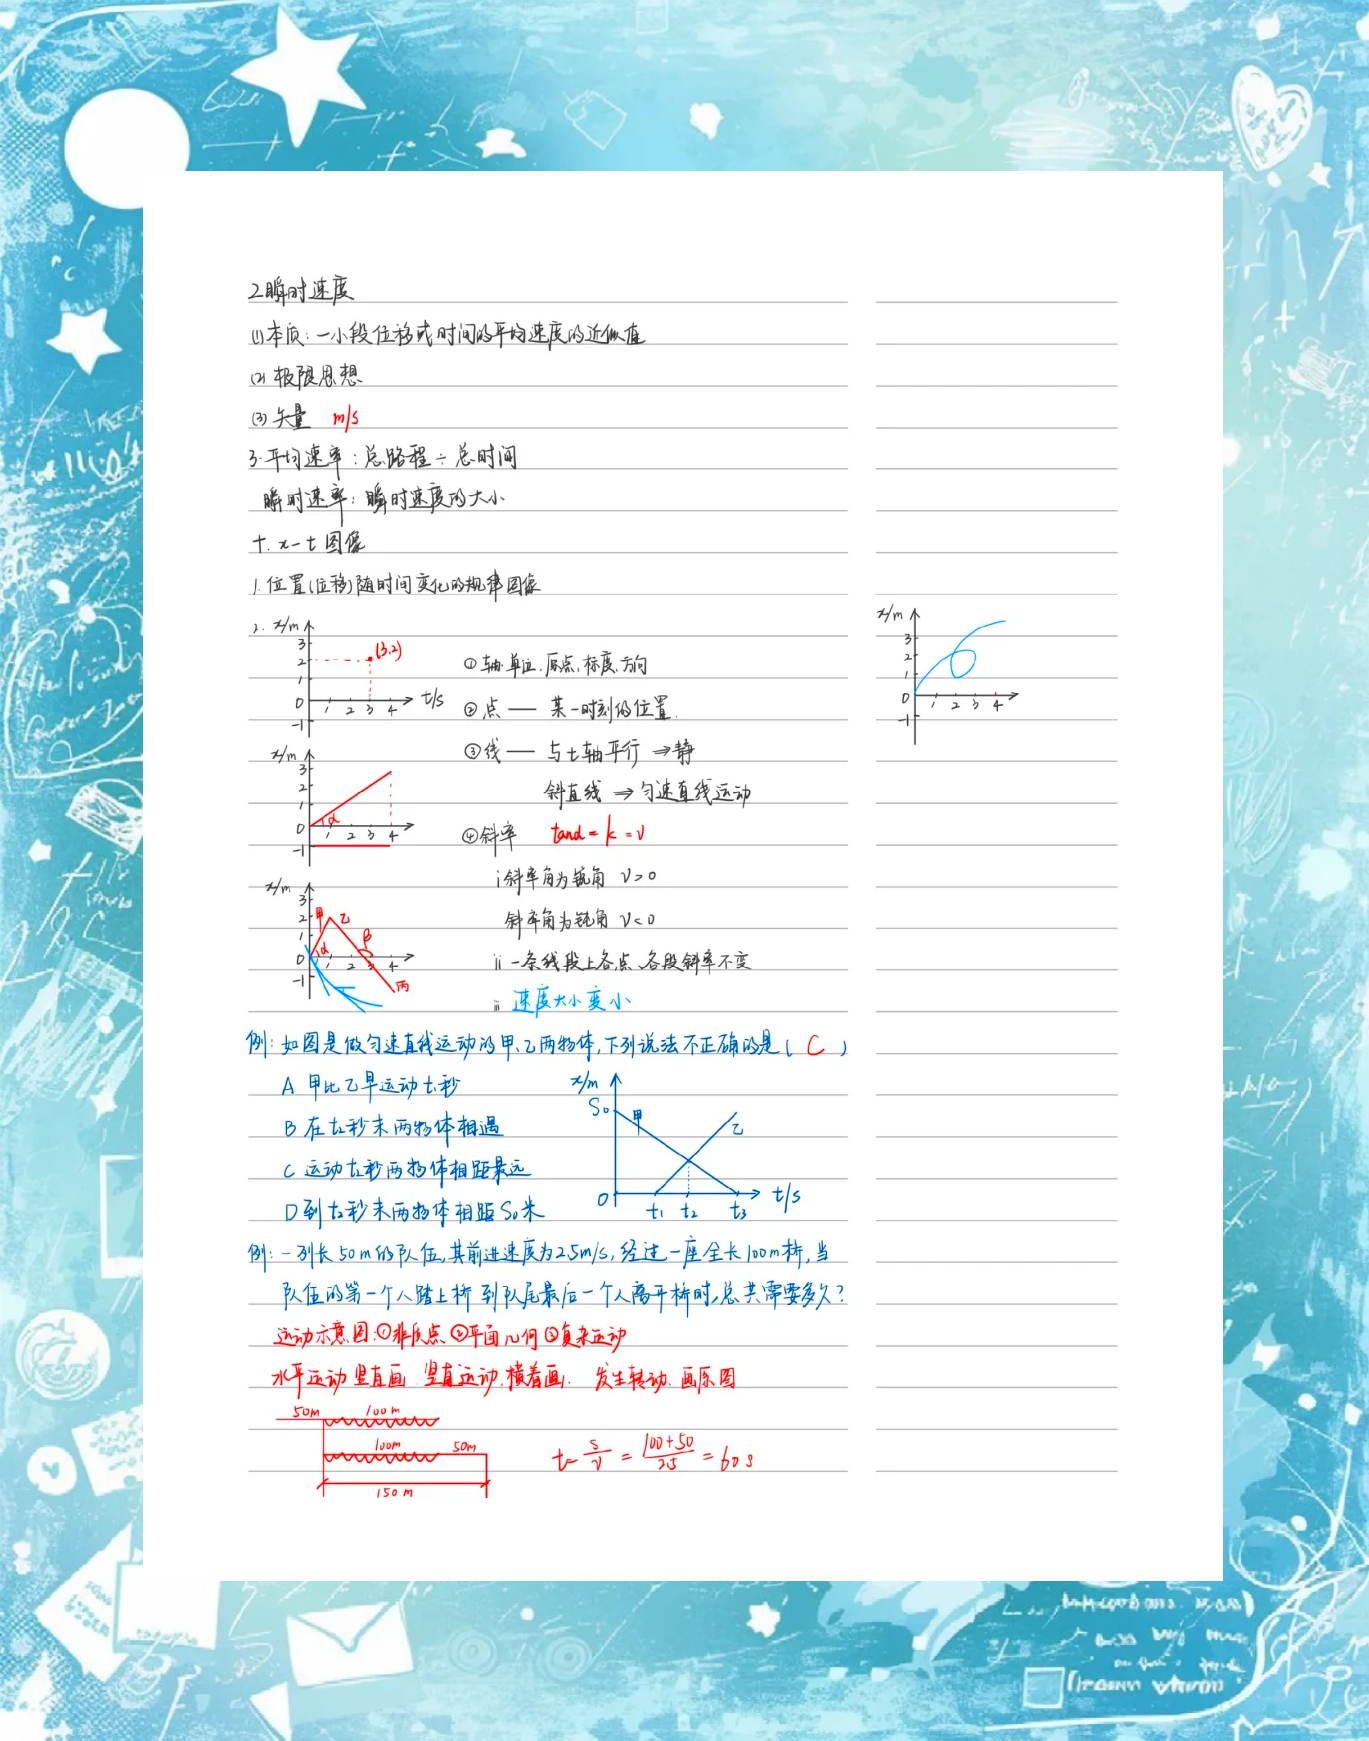 2.瞬时速度
(1)本质：一小段位移或时间的平均速度的近似值
(2)极限思想
(3)矢量 m/s
3.平均速率：总路程÷总时间
瞬时速率：瞬时速度的大小
十.x-t图像
1.位置(位移)随时间变化的规律图像
2. x/m 3 2 1 0 -1 1 2 3 4 t/s (3.2)
①轴.单位.原点.标度.方向
②点——某一时刻的位置.
③线——与t轴平行⇒静
斜直线⇒匀速直线运动
x/m 3 2 1 0 -1 α 1 2 3 4
④斜率 tanα=k=v
i斜率角为锐角 v>0
斜率角为钝角 v<0
ii一条线段上各点、各段斜率不变
iii 速度大小变小
x/m 3 2 1 0 -1 甲 乙 丙 α β 1 2 3 4
x/m 3 2 1 0 -1 1 2 3 4
例：如图是做匀速直线运动的甲、乙两物体，下列说法不正确的是( C )
A 甲比乙早运动t₁秒
B 在t₂秒末两物体相遇
C 运动t₂秒两物体相距最远
D到t₃秒末两物体相距S₀米
x/m S₀ 甲 乙 0 t₁ t₂ t₃ t/s
例：一列长50m的队伍,其前进速度为2.5m/s,经过一座全长100m桥,当
队伍的第一个人踏上桥到队尾最后一个人离开桥时,总共需要多久?
运动示意图:①非质点②平面几何③复杂运动
水平运动竖直画 竖直运动.横着画. 发生转动.画原图
50m 100m
100m 50m
150m
t=s/v=(100+50)/2.5=60s